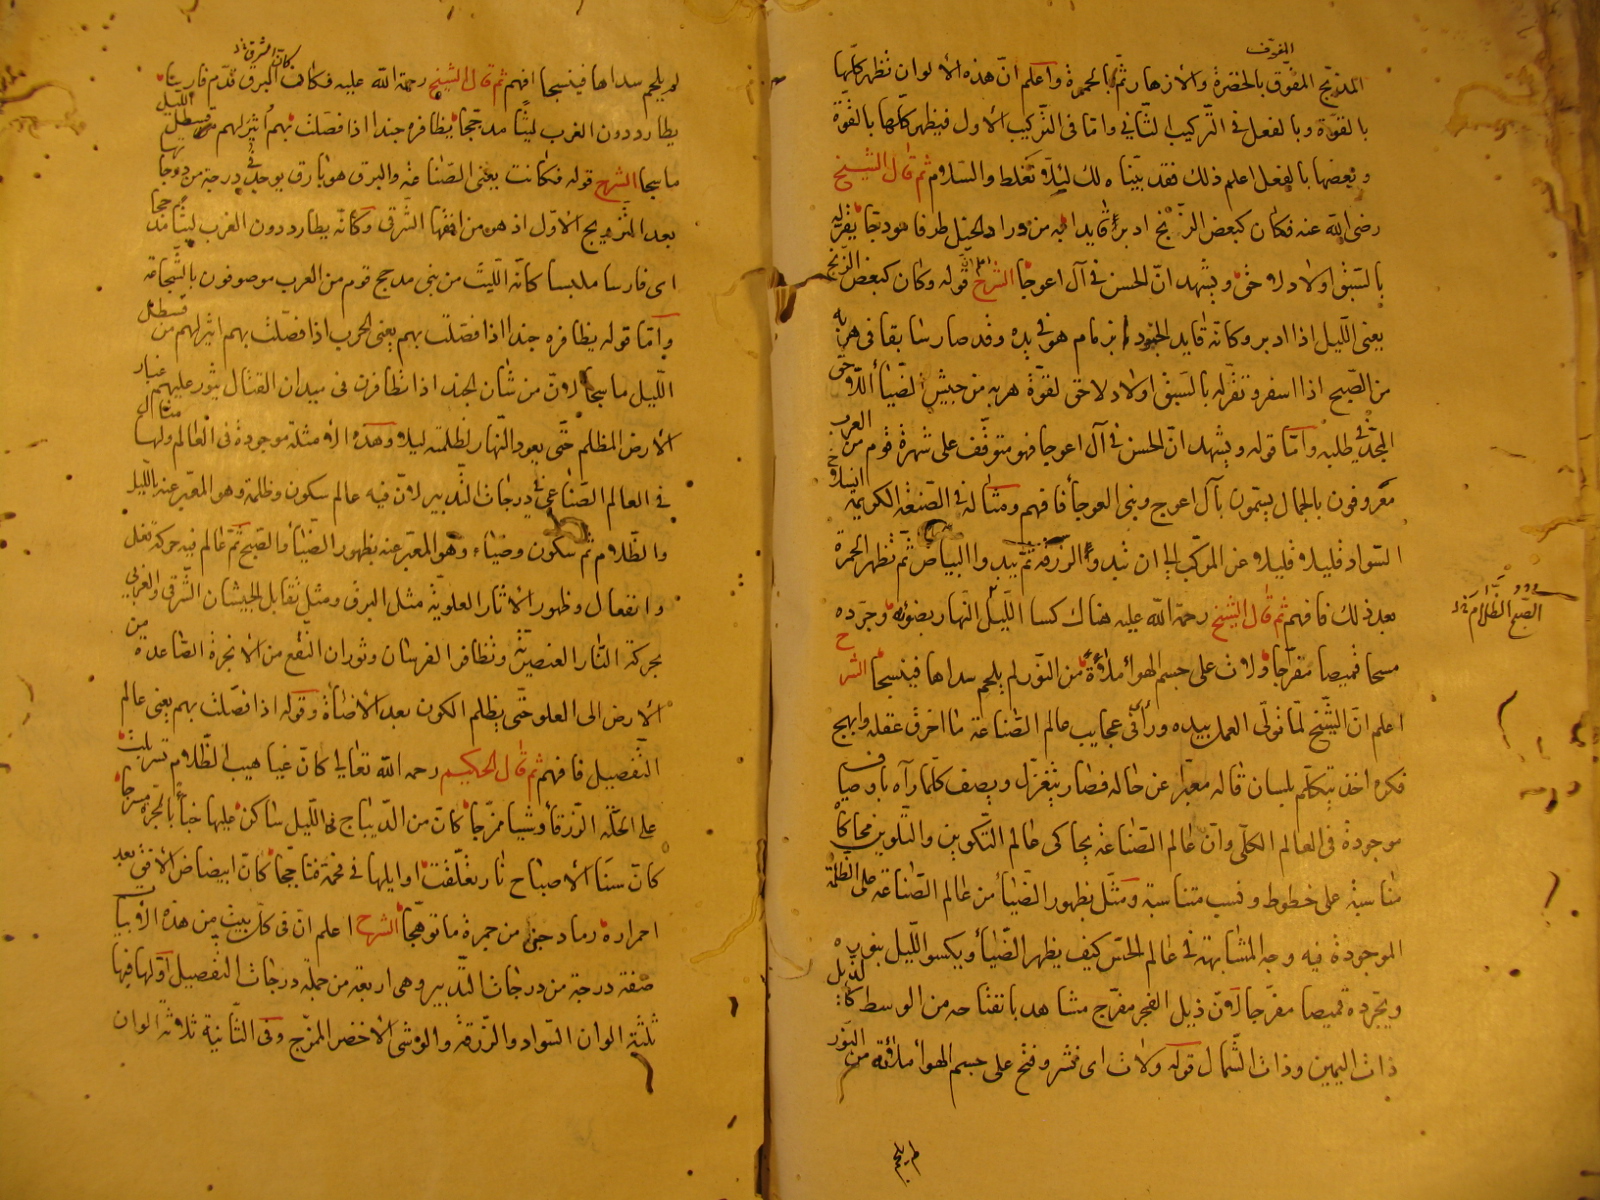 المفوّف
المدبّج المفوّق بالخضرة والازهار ثمّ بالحمرة واعلم انّ هذه الالوان تظهر كلّها
بالقوّة وبالفعل فى التّركيب الثّانى وامّا فى التّركيب الاول فيظهر كلّها بالقوّة
وبعضها بالفعل اعلم ذلك فقد بيّناه لك ليلا تغلط والسّلام ثم قال الشيخ
رضى الله عنه فكان كبعض الزّنج ادبر قايدا به من وراد الخيل طرفا هودجا يقرّ له
بالسّبق اولاد لاحق ويشهد انّ الحسن فى آل اعوجا الشرح قوله وكان كبعض الزنج
يعنى اللّيل اذا ادبر وكانّه قايد الجنود بزمام هو فى يده وقد صار سابقا فى هربه
من الصّبح اذا اسفر وتقرّ له بالسّبق اولاد لاحق لقوّة هربه من جيش الضّياء اللاحق
المجدّ فى طلبه وامّا قوله ويشهد انّ الحسن فى آل اعوجا فهو متوقّف على شهرة قوم من العرب
معروفون بالجمال يسمّون بآل اعوج وبنى العوجا فافهم ومثاله فى الصّنعة الكريمة انسلاخ
السّواد قليلا قليلا عن المركّب الى ان تبدو الزرقة ثمّ يبدوا البياض ثمّ تظهر الحمرة
بعد ذلك فافهم ثم قال الشيخ رحمة الله عليه هناك كسا اللّيل النّهار بضوئه وجرّده
الصّبح الظّلام
مسحا قميصا مفرّجا ولاث على جسم الهواء ملاءة من النّور لم يلحم سداها فينسجا الشرح
اعلم انّ الشّيخ لمّا تولّى العمل بيده ورأى عجايب عالم الصّناعة ما اخرق عقله وابهج
فكره اخذ يتكلّم بلسان قاله معبّرا عن حاله فصار يتغزّل ويصف كلّما رآه باوصاف
موجودة فى العالم الكلّى وانّ عالم الصّناعة يحاكى عالم التّكوين والتّلوين محاكاة
مناسبة على خطوط ونسب متناسبة ومثّل بظهور الضّياء من عالم الصّناعة على الظلمة
الموجودة فيه وجه المشابهة فى عالم الحسّ كيف يظهر الضّياء ويكسو اللّيل بنوره
ويجرّده قميصا مفرّجا لانّ ذيل الفجر مفرّج مشاهد بانفتاحه من الوسط كالذيل
ذات اليمين وذات الشّمال قوله ولاث اى نشر وفتح على جسم الهواء ملاءة من النّور
لم يلحم
كان المشرق
لم يلحم سداها فينسجا افهم ثم قال الشيخ رحمة الله عليه فكان البرق قدّم فارسا
يطارد دون الغرب ليثا مدجّجا يظافره جندا اذا فصلت بهم اثير لهم من قسطل الليل
ما سجا الشرح قوله فكانت يعنى الصّناعة والبرق هو بارق يوجد فى درجة من درجاتها
بعد التّزويج الاوّل اذ هو من افقها الشّرقى وكأنّه يطارد دون الغرب ليثا مدججا
اى فارسا ملبسا كانّه اللّيث من بنى مدجج قوم من العرب موصوفون بالشّجاعة
وامّا قوله يظافره جندا اذا فصلت بهم يعنى الحرب اذا فصّلت بهم اثير لهم من قسطل
اللّيل ما سجا لانّ من شان الجند اذا تظافرت فى ميدان القتال يثور عليهم غبار
الارض المظلم حتّى يعود النّهار لظلمته ليلا وهذه الامثلة موجودة فى العالم ولها مثال
فى العالم الصّناعى فى درجات التّدبير لانّ فيه عالم سكون وظلمة وهو المعبّر عنه باللّيل
والظّلام ثمّ سكون وضياء وهو المعبّر عنه بظهور الضّياء والصّبح ثمّ عالم فيه حركة تفعل
وانفعال وظهور الاثار العلويّة مثل البرق ومثل تقابل الجيشان الشّرقى والغربى
بحركة النّار العنصريّة وتظافر الفرسان وثوران النّقع من الابخرة الصّاعدة من
الارض الى العلو حتّى يظلم الكون بعد الاضاءة وقوله اذا فصّلت بهم يعنى عالم
التّفصيل فافهم ثم قال الحكيم رحمه الله تعالى كانّ غياهيب الظّلام تسربلت
على الحلّة الزرقاء وشيا ممزّجا كانّ من الدّيباج فى اللّيل ساكن عليها خباء بالمجرّة مسرجا
كانّ سنا الاصباح نار تعلّقت اوايلها فى فحمة فتاجّجا كانّ ابيضاض الافق بعد
احمراره رماد جنى من جمرة ما توهّجا الشرح اعلم انّ فى كلّ بيت من هذه الابيات
صفة درجة من درجات التّدبير وهى اربعة من جملة درجات التّفصيل اوّلها فيها
ثلثة الوان السّواد والزّرقة والوشى الاخضر الممزّج وفى الثّانية ثلاثة الوان